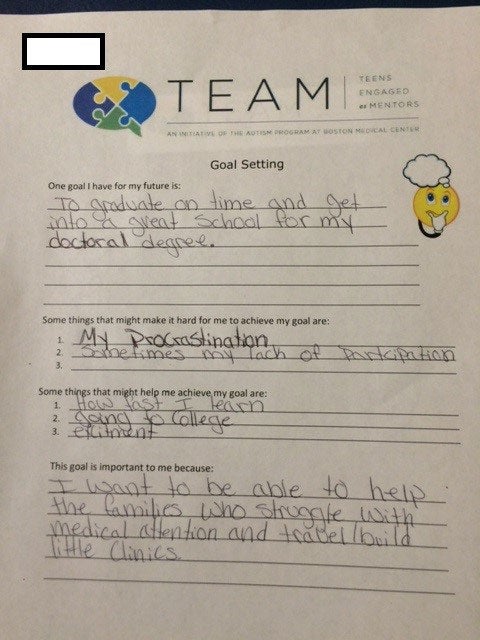 TEAM
TEENS
ENGAGED
as MENTORS
AN INITIATIVE OF THE AUTISM PROGRAM AT BOSTON MEDICAL CENTER
Goal Setting
One goal I have for my future is:
To graduate on time and get
into a great School for my
doctoral degree.
Some things that might make it hard for me to achieve my goal are:
1. My Procrastination
2. Sometimes my lack of Partcipation
3.
Some things that might help me achieve my goal are:
1. How fast I learn
2. going to College
3. exitment
This goal is important to me because:
I want to be able to help
the families who struggle with
medical attention and travel/build
little Clinics